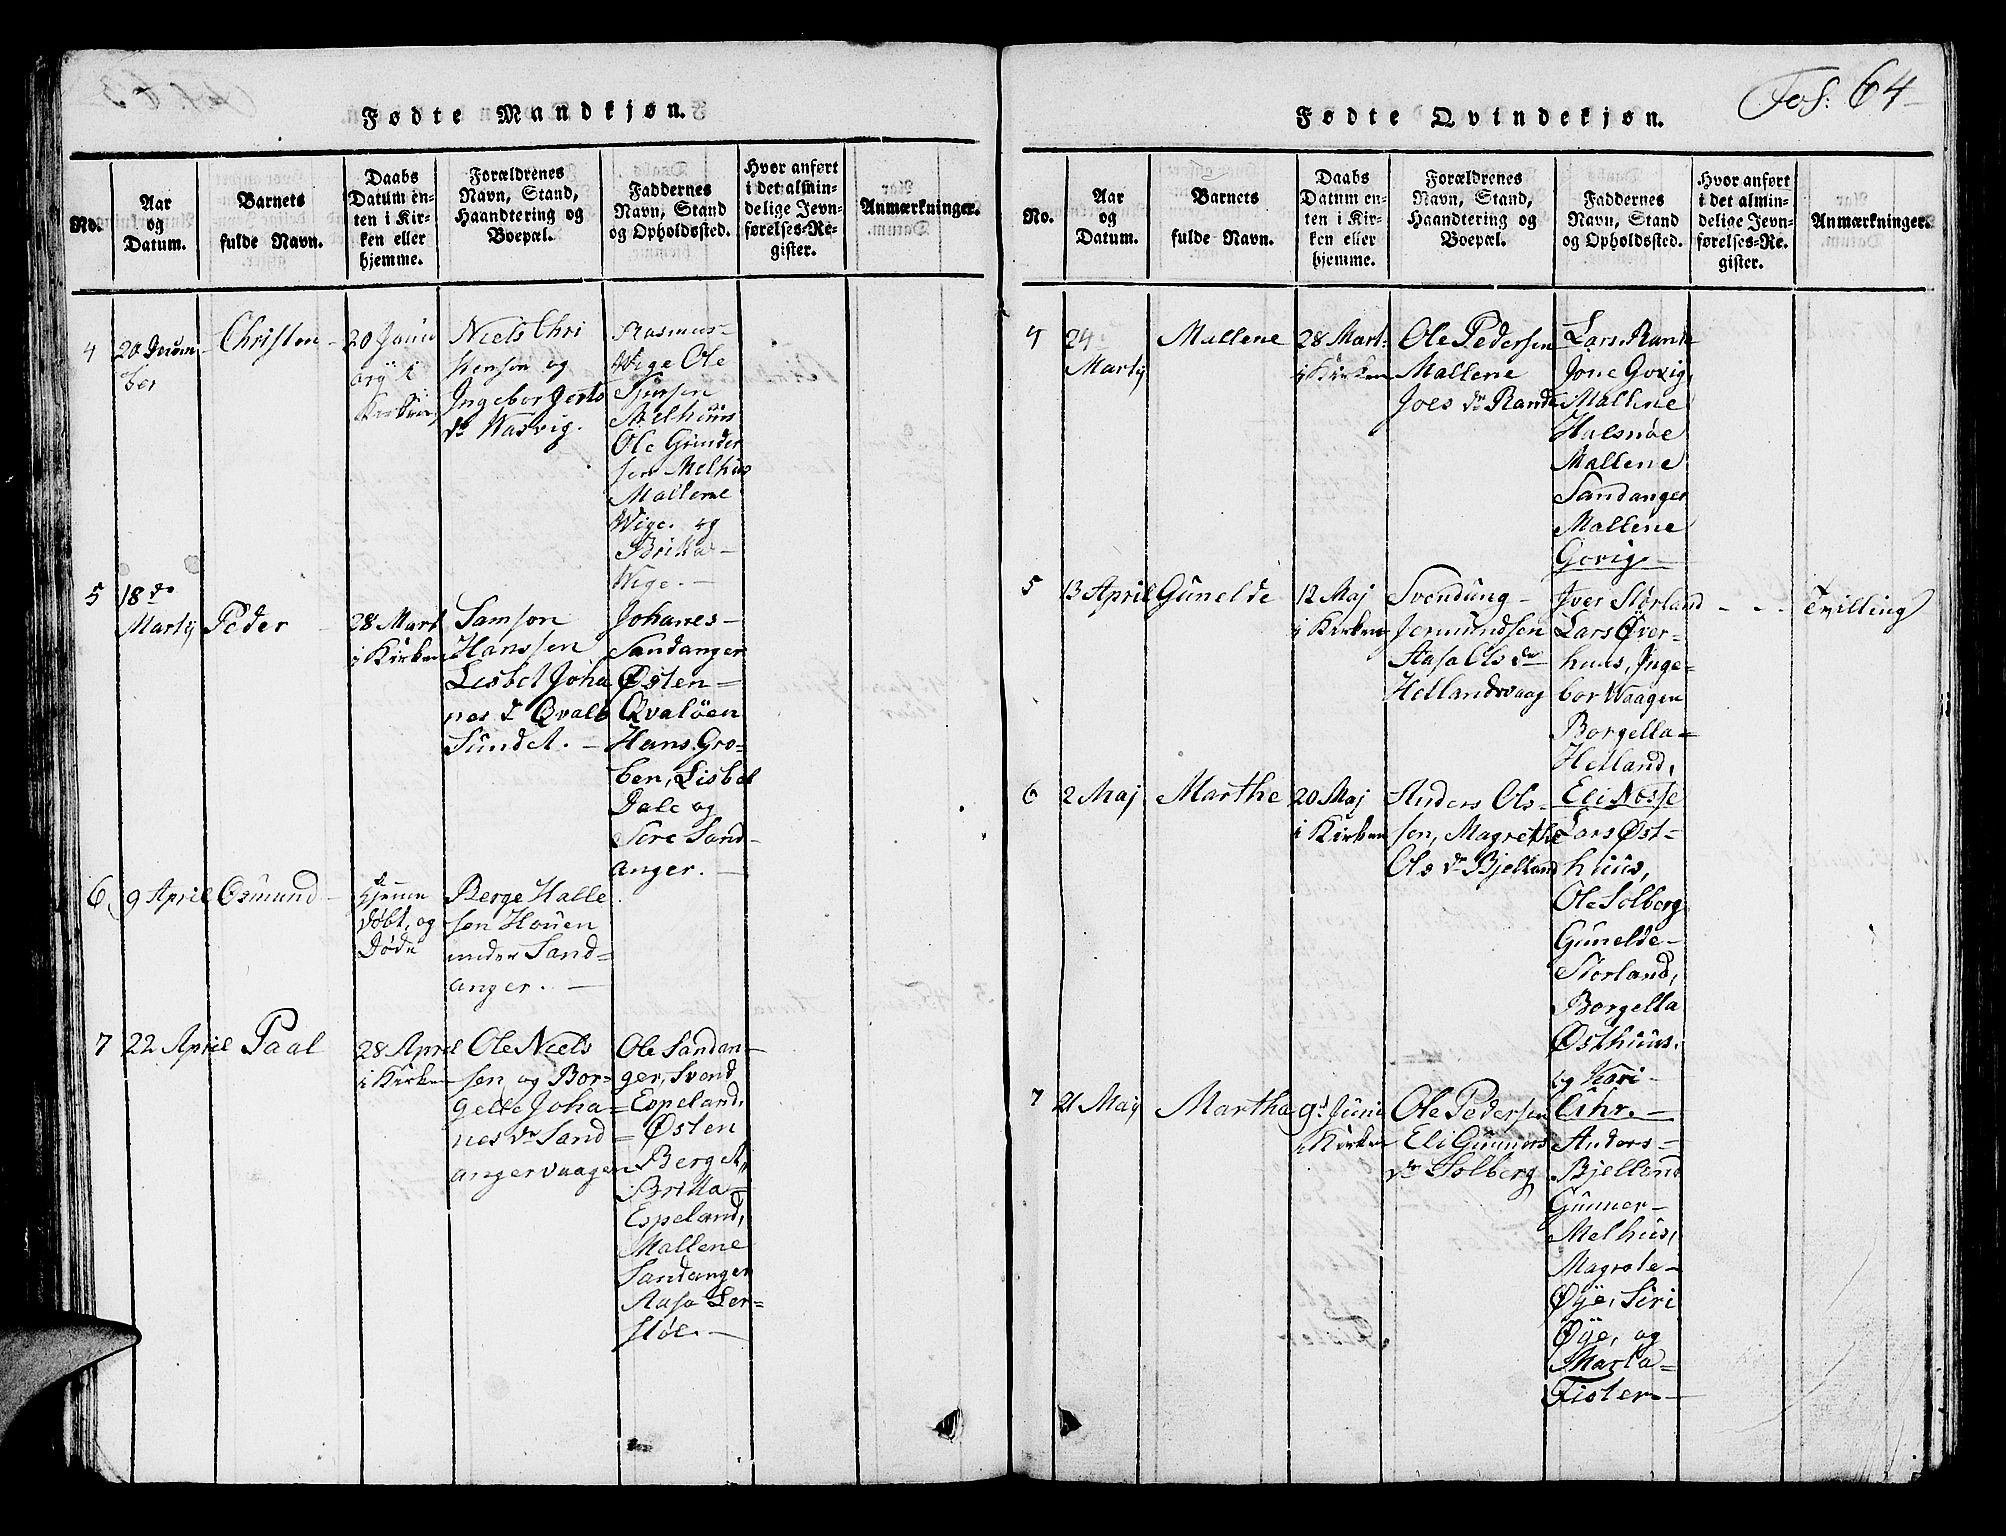 Fødte Mandkjøn.
No.
Aar
og
Datum.
Barnets
fulde Navn.
Daabs
Datum en-
ten i Kir-
ken eller
hjemme.
Forældrenes
Navn, Stand,
Haandtering og
Boepæl.
Faddernes
Navn, Stand
og Opholdssted.
Hvor anført
i det almin-
delige Jevn-
førelses-Re-
gister.
Anmærkninger.
4
20 Decem
ber
Christen
20 Janu
ary i
Kirken
Niels Chri
stensen og
Ingebor Jorts
dr Nasvig.
Rasmus
Wige Ole
Sjursen
Melhuus
Ole Gunder
sen Melhus
Mallene
Wige. og
Britta
Wige.
5
18de
Marty
Peder
28 Mart
i Kirken
Samson
Hanssen
Lisbet Joha
nes dr Qvalø
Sundet.
Johanes
Sandanger
Østen
Qvaløen
Hans Gro-
ben, Lisbet
Dale og
Sere Sand-
anger.
6
9 April
Osmund
Hjemme
døbt, og
Døde
Berge Halle
sen Houen
under Sand=
anger.
7
22 April
Paal
28 April
i Kirken
Ole Niels
sen og Bor-
gelle Joha-
nes dr Sand
angervaagen
Ole Sandan-
ger, Svend
Espeland,
Østen
Berge
Britta
Espeland,
Mallene
Sandanger
Aasa Ler-
støe.
Fol: 64
Fødte Qvindekjøn.
No.
Aar
og
Datum.
Barnets
fulde Navn.
Daabs
Datum en-
ten i Kir-
ken eller
hjemme.
Forældrenes
Navn, Stand,
Haandtering og
Boepæl.
Faddernes
Navn, Stand
og Opholdssted.
Hvor anført
i det almin-
delige Jevn-
førelses-Re-
gister.
Anmærkninger.
4
24
Marty
Mallene
28 Mart
i Kirken
Ole Pedersen
Mallene
Joes dr Rande
Lars Rande
Jone Govig,
Mallene
Halsnøe
Mallene
Sandanger
Mallene
Govig
5
13 April
Gunelde
12 Maj
i Kirken
Svendung
Jermundsen
Aasa Ols dr
Hellandsvaag
Iver Storland
Lars Øver-
huus, Inge-
bor Waagen
Borgella
Helland,
Eli Nesse
Tvilling
6
2 Maj
Marthe
20 Maj
i Kirken
Anders Ols-
sen, Magrethe
Ols dr Bjelland
Lars Øst-
huus,
Ole Solberg
Gunelde
Storland,
Borgella
Østhuus.
og Kari
7
21 Maj
Martha
9d Juni
i Kirken
Ole Pedersen
Eli Gunners
dr Solberg
Anders
Bjelland
Gunner
Melhus,
Magrete
Øye, Siri
Øye, og
Marta
Fister